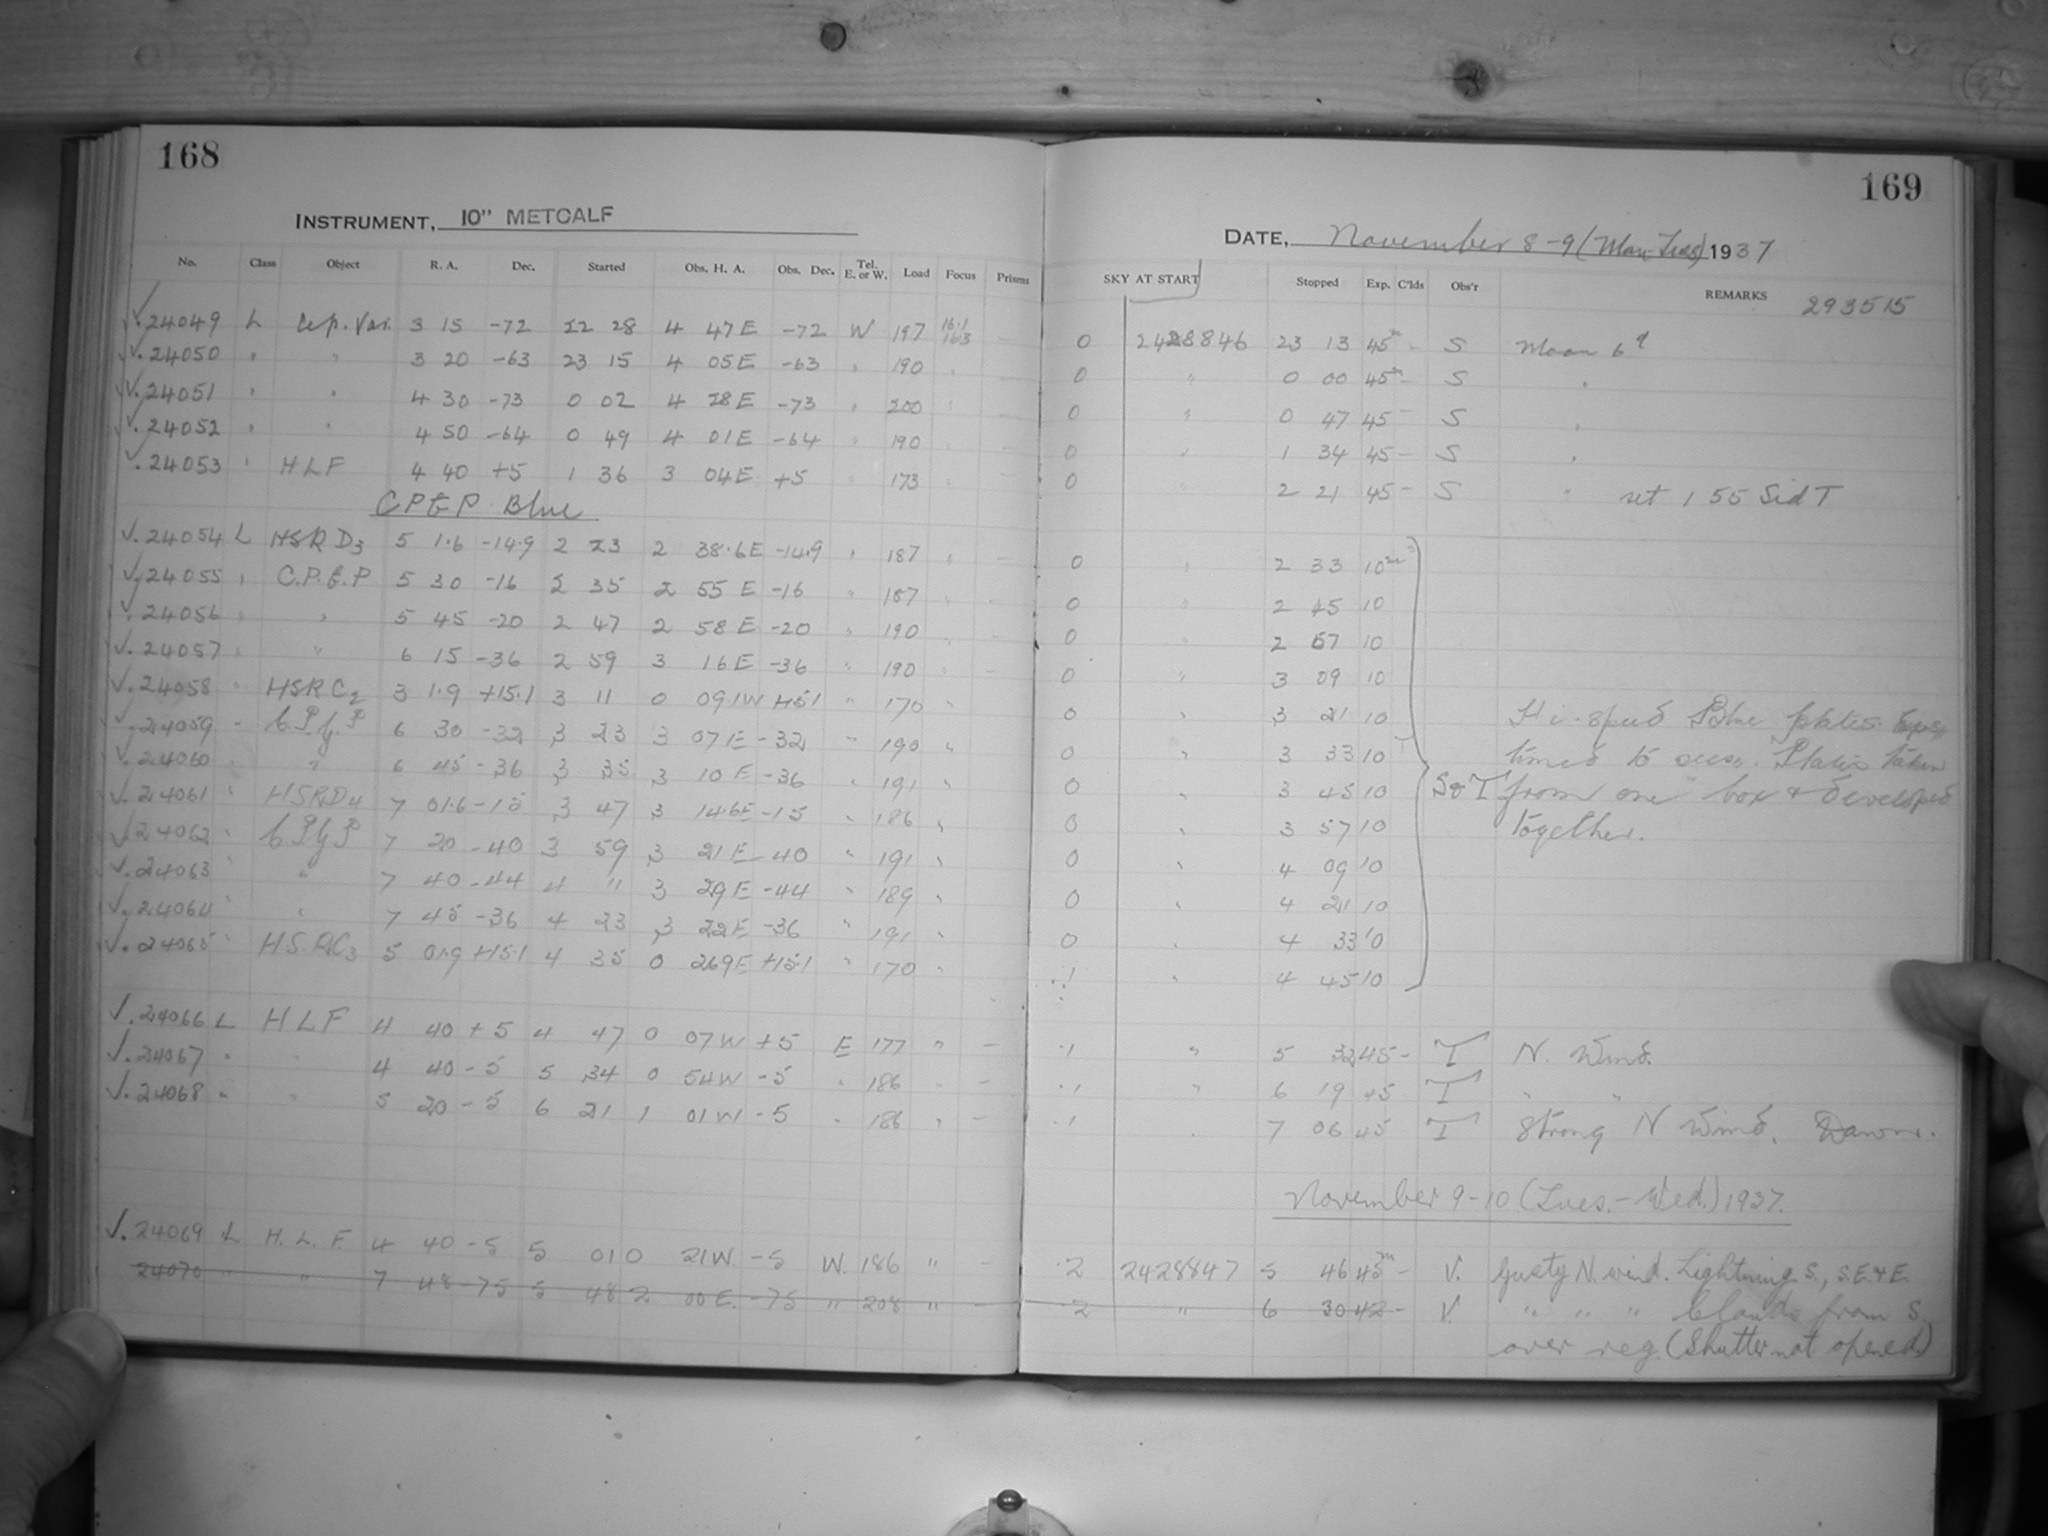 168
INSTRUMENT, 10" METCALF
No. Class Object R. A. Dec. Started Obs. H. A. Obs. Dec. Tel. E. or W. Load Focus Prisms
√.24049 L Cep. Var. 3 15 -72 22 28 4 47E -72 W 197 16.1 16.3
√.24050 " " 3 20 -63 23 15 4 05E -63 " 190
√.24051 " " 4 30 -73 0 02 4 28E -73 " 200
√.24052 " " 4 50 -64 0 49 4 01E -64 " 190
√.24053 " HLF 4 40 +5 1 36 3 04E +5 " 173
Blue
√.24054 L HSR D3 5 1.6 -14.9 2 23 2 38.6E -14.9 " 187 " -
√.24055 " 5 30 -16 2 35 2 55 E -16 " 187 " -
√.24056 " " 5 45 -20 2 47 2 58 E -20 " 190 " -
√.24057 " " 6 15 -36 2 59 3 16E -36 " 190 " -
√.24058 " HSR C2 3 1.9 +15.1 3 11 0 09.1W +15.1 " 170 "
√.24059 " 6 30 -32 3 23 3 07E -32 " 190 "
√.24060 " " 6 45 -36 3 35 3 10E -36 " 191 "
√.24061 " HSRD4 7 01.6 -15 3 47 3 14.6E -15 " 186 "
√.24062 " 7 20 -40 3 59 3 21E -40 " 191 "
√.24063 " " 7 40 -44 4 11 3 29E -44 " 189 "
√.24064 " " 7 45 -36 4 23 3 22E -36 " 191 "
√.24065 " HSRC3 5 01.9 +15.1 4 35 0 26.9E +15.1 " 170 "
√.24066 L HLF 4 40 +5 4 47 0 07W +5 E 177 " -
√.24067 " " 4 40 -5 5 34 0 54W -5 " 186 " -
√.24068 " " 5 20 -5 6 21 1 01W -5 " 186 " -
√.24069 L H. L. F. 4 40 -5 5 01 0 21W. -5 W. 186 " -
24070 " " 7 48 -75 5 48 2 00E. -75 " 208 " -
169
DATE, November 8-9 (Mon-Tues) 1937
SKY AT START Stopped Exp. C'lds Obs'r REMARKS 293515
0 2428846 23 13 45m - S Moon 6d
0 " 0 00 45m - S "
0 " 0 47 45 - S "
0 " 1 34 45 - S "
0 " 2 21 45 - S " set 1 55 Sid T
0 " 2 33 10m
0 " 2 45 10
0 " 2 57 10
0 " 3 09 10
0 " 3 21 10 Hi-speed Blue plates
0 " 3 33 10 timed to Plates taken
0 " 3 45 10 S&T from one box & developed
0 " 3 57 10 together.
0 " 4 09 10
0 " 4 21 10
0 " 4 33 10
.1 " 4 45 10
.1 " 5 32 45 - T N. Wind.
.1 " 6 19 45 T " "
.1 " 7 06 45 T Strong N. Wind. Dawn.
November 9-10 (Tues.-Wed.) 1937.
.2 2428847 5 46 45m - V. Gusty N. wind. Lightning S., S.E. & E.
.2 " 6 30 42 - V. " " " Clouds from S.
over reg. (Shutter not opened.)